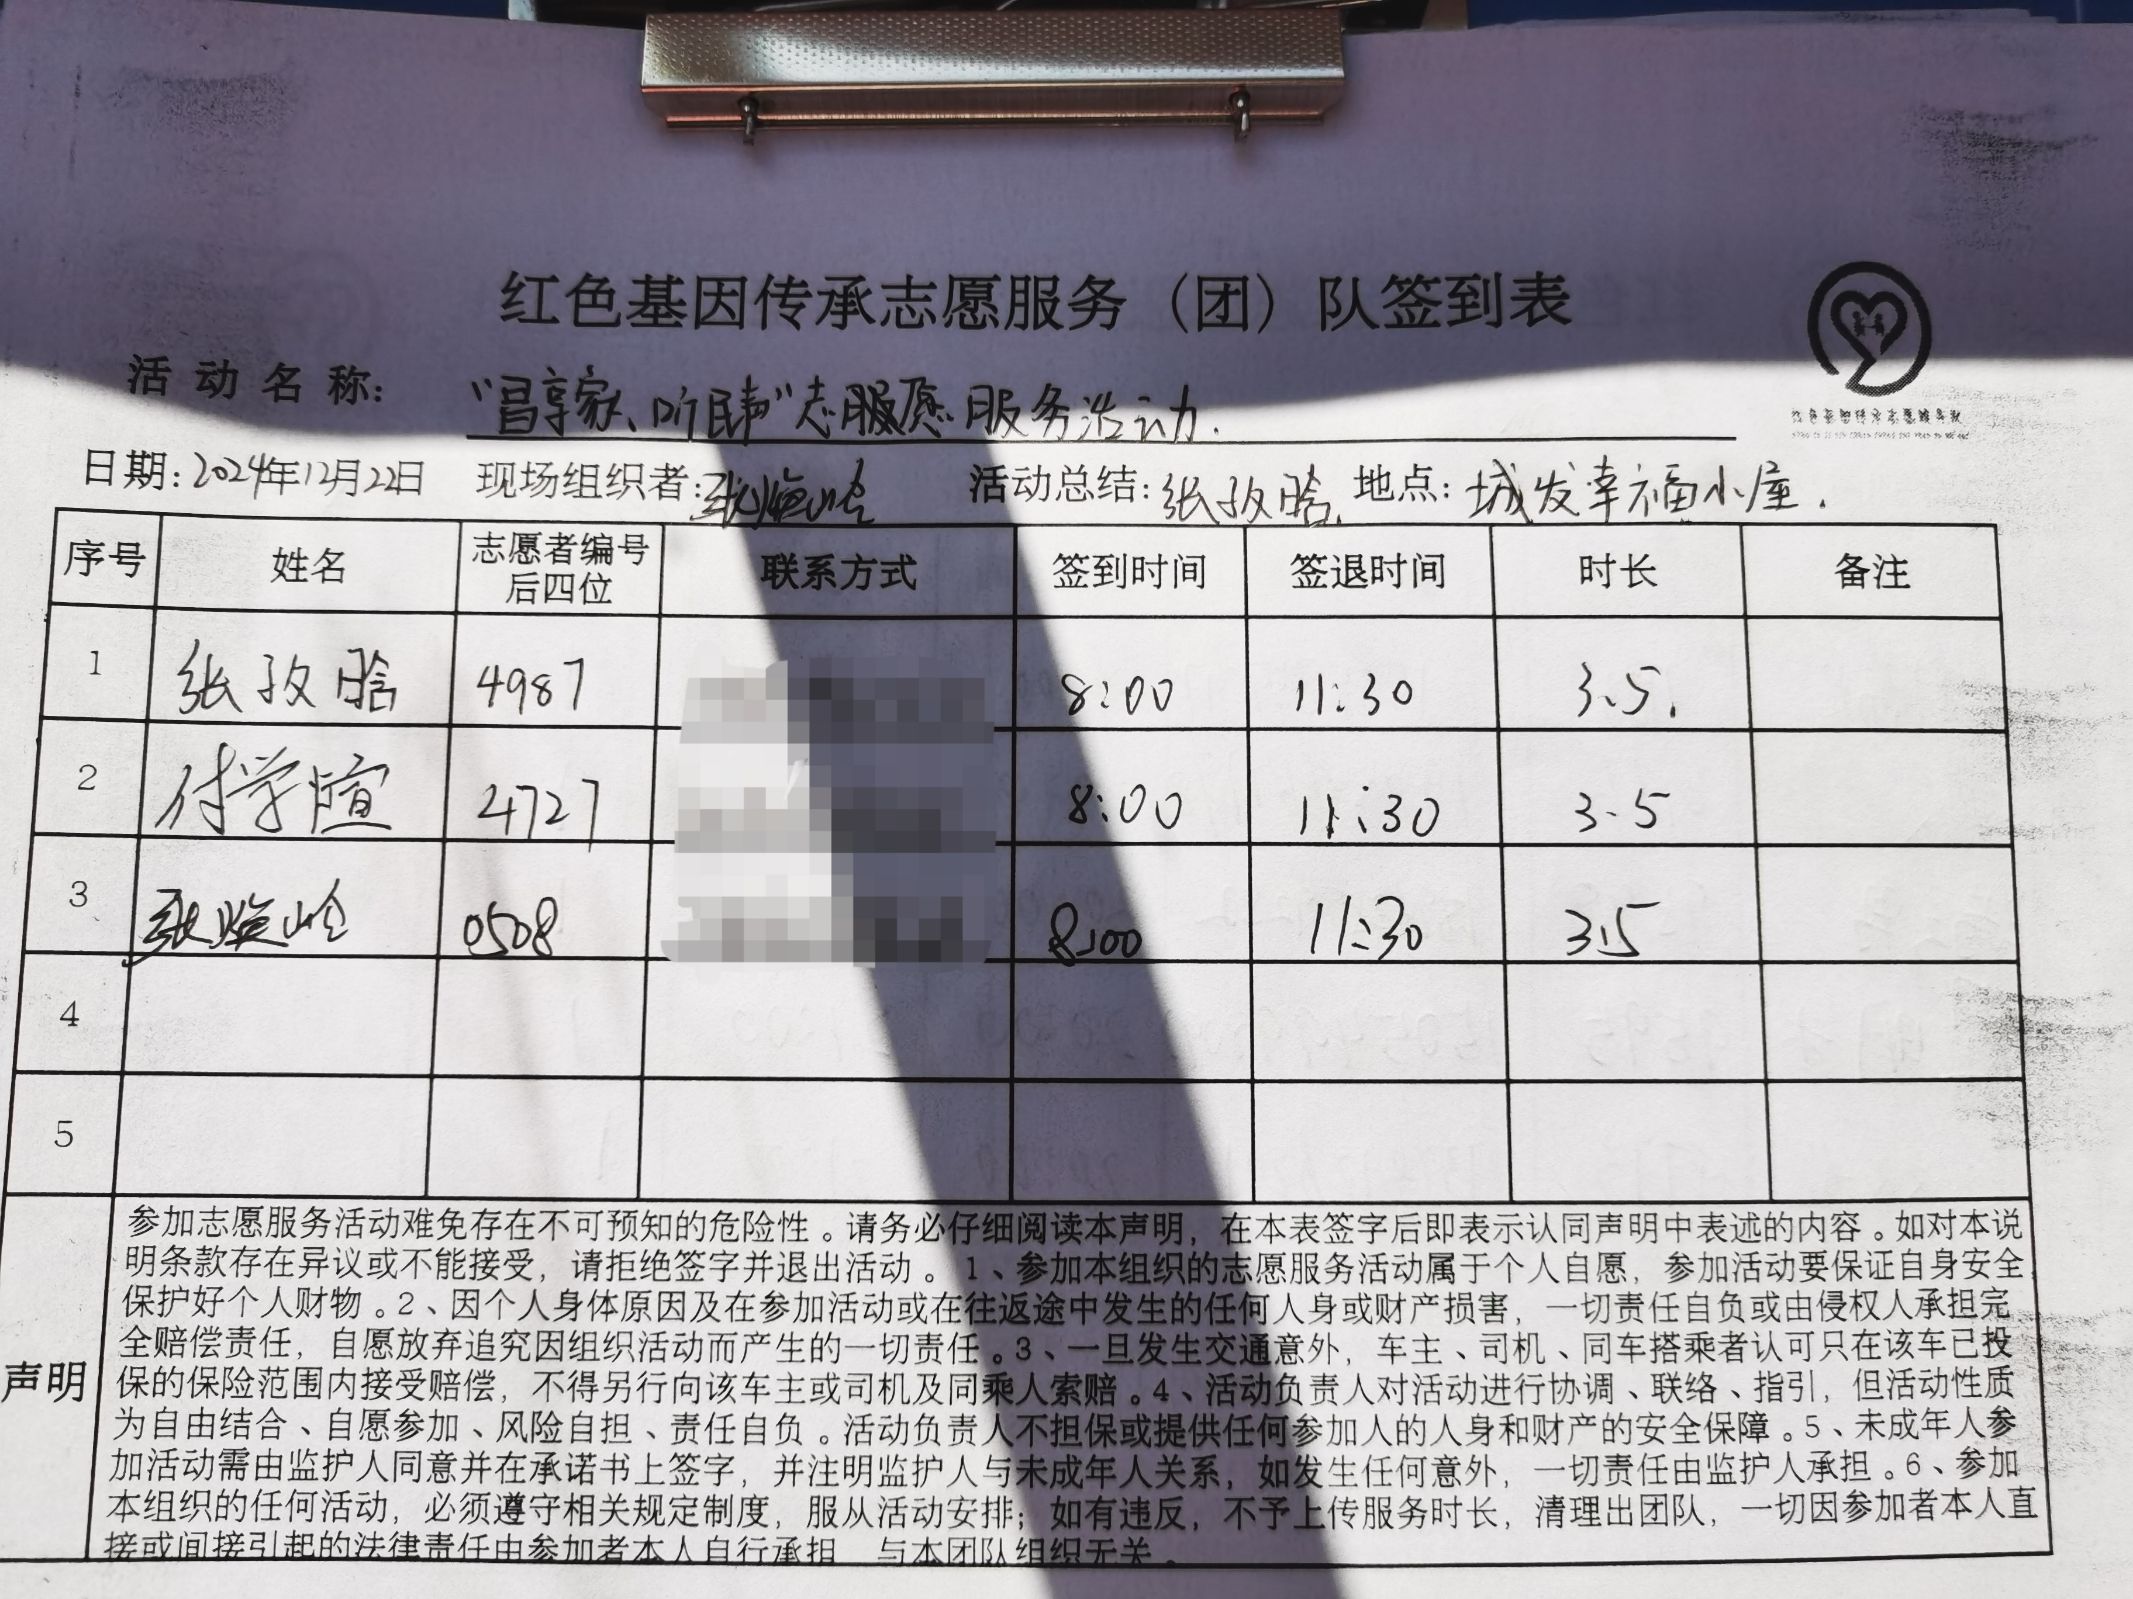 红色基因传承志愿服务（团）队签到表
活动名称: “昌享家、听民声”志愿服务活动.
日期: 2024年12月22日 现场组织者: 活动总结: 张孜晗. 地点: 城发幸福小屋.
序号 姓名 志愿者编号后四位 联系方式 签到时间 签退时间 时长 备注
1 张孜晗 4987 8:00 11:30 3.5.
2 付学煊 4727 8:00 11:30 3.5
3 0508 8:00 11:30 3.5
4
5
声明
参加志愿服务活动难免存在不可预知的危险性。请务必仔细阅读本声明，在本表签字后即表示认同声明中表述的内容。如对本说
明条款存在异议或不能接受，请拒绝签字并退出活动。1、参加本组织的志愿服务活动属于个人自愿，参加活动要保证自身安全，
保护好个人财物。2、因个人身体原因及在参加活动或在往返途中发生的任何人身或财产损害，一切责任自负或由侵权人承担完
全赔偿责任，自愿放弃追究因组织活动而产生的一切责任。3、一旦发生交通意外，车主、司机、同车搭乘者认可只在该车已投
保的保险范围内接受赔偿，不得另行向该车主或司机及同乘人索赔。4、活动负责人对活动进行协调、联络、指引，但活动性质
为自由结合、自愿参加、风险自担、责任自负。活动负责人不担保或提供任何参加人的人身和财产的安全保障。5、未成年人参
加活动需由监护人同意并在承诺书上签字，并注明监护人与未成年人关系，如发生任何意外，一切责任由监护人承担。6、参加
本组织的任何活动，必须遵守相关规定制度，服从活动安排；如有违反，不予上传服务时长，清理出团队，一切因参加者本人直
接或间接引起的法律责任由参加者本人自行承担，与本团队组织无关。